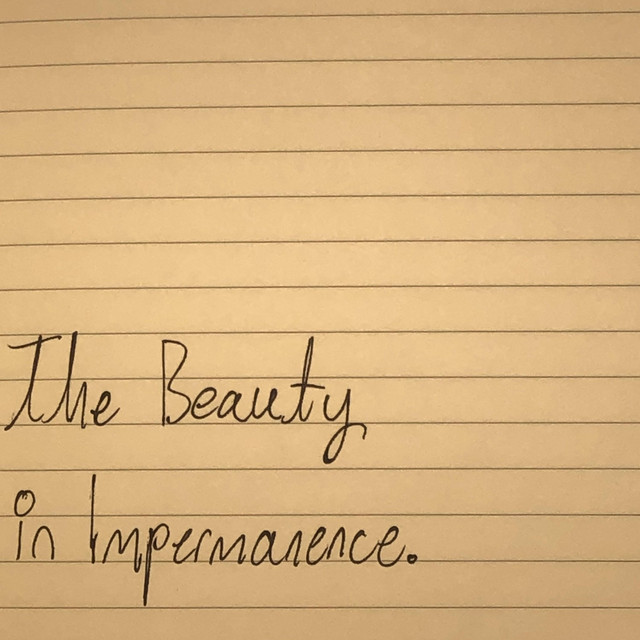 The Beauty
in Impermanence.